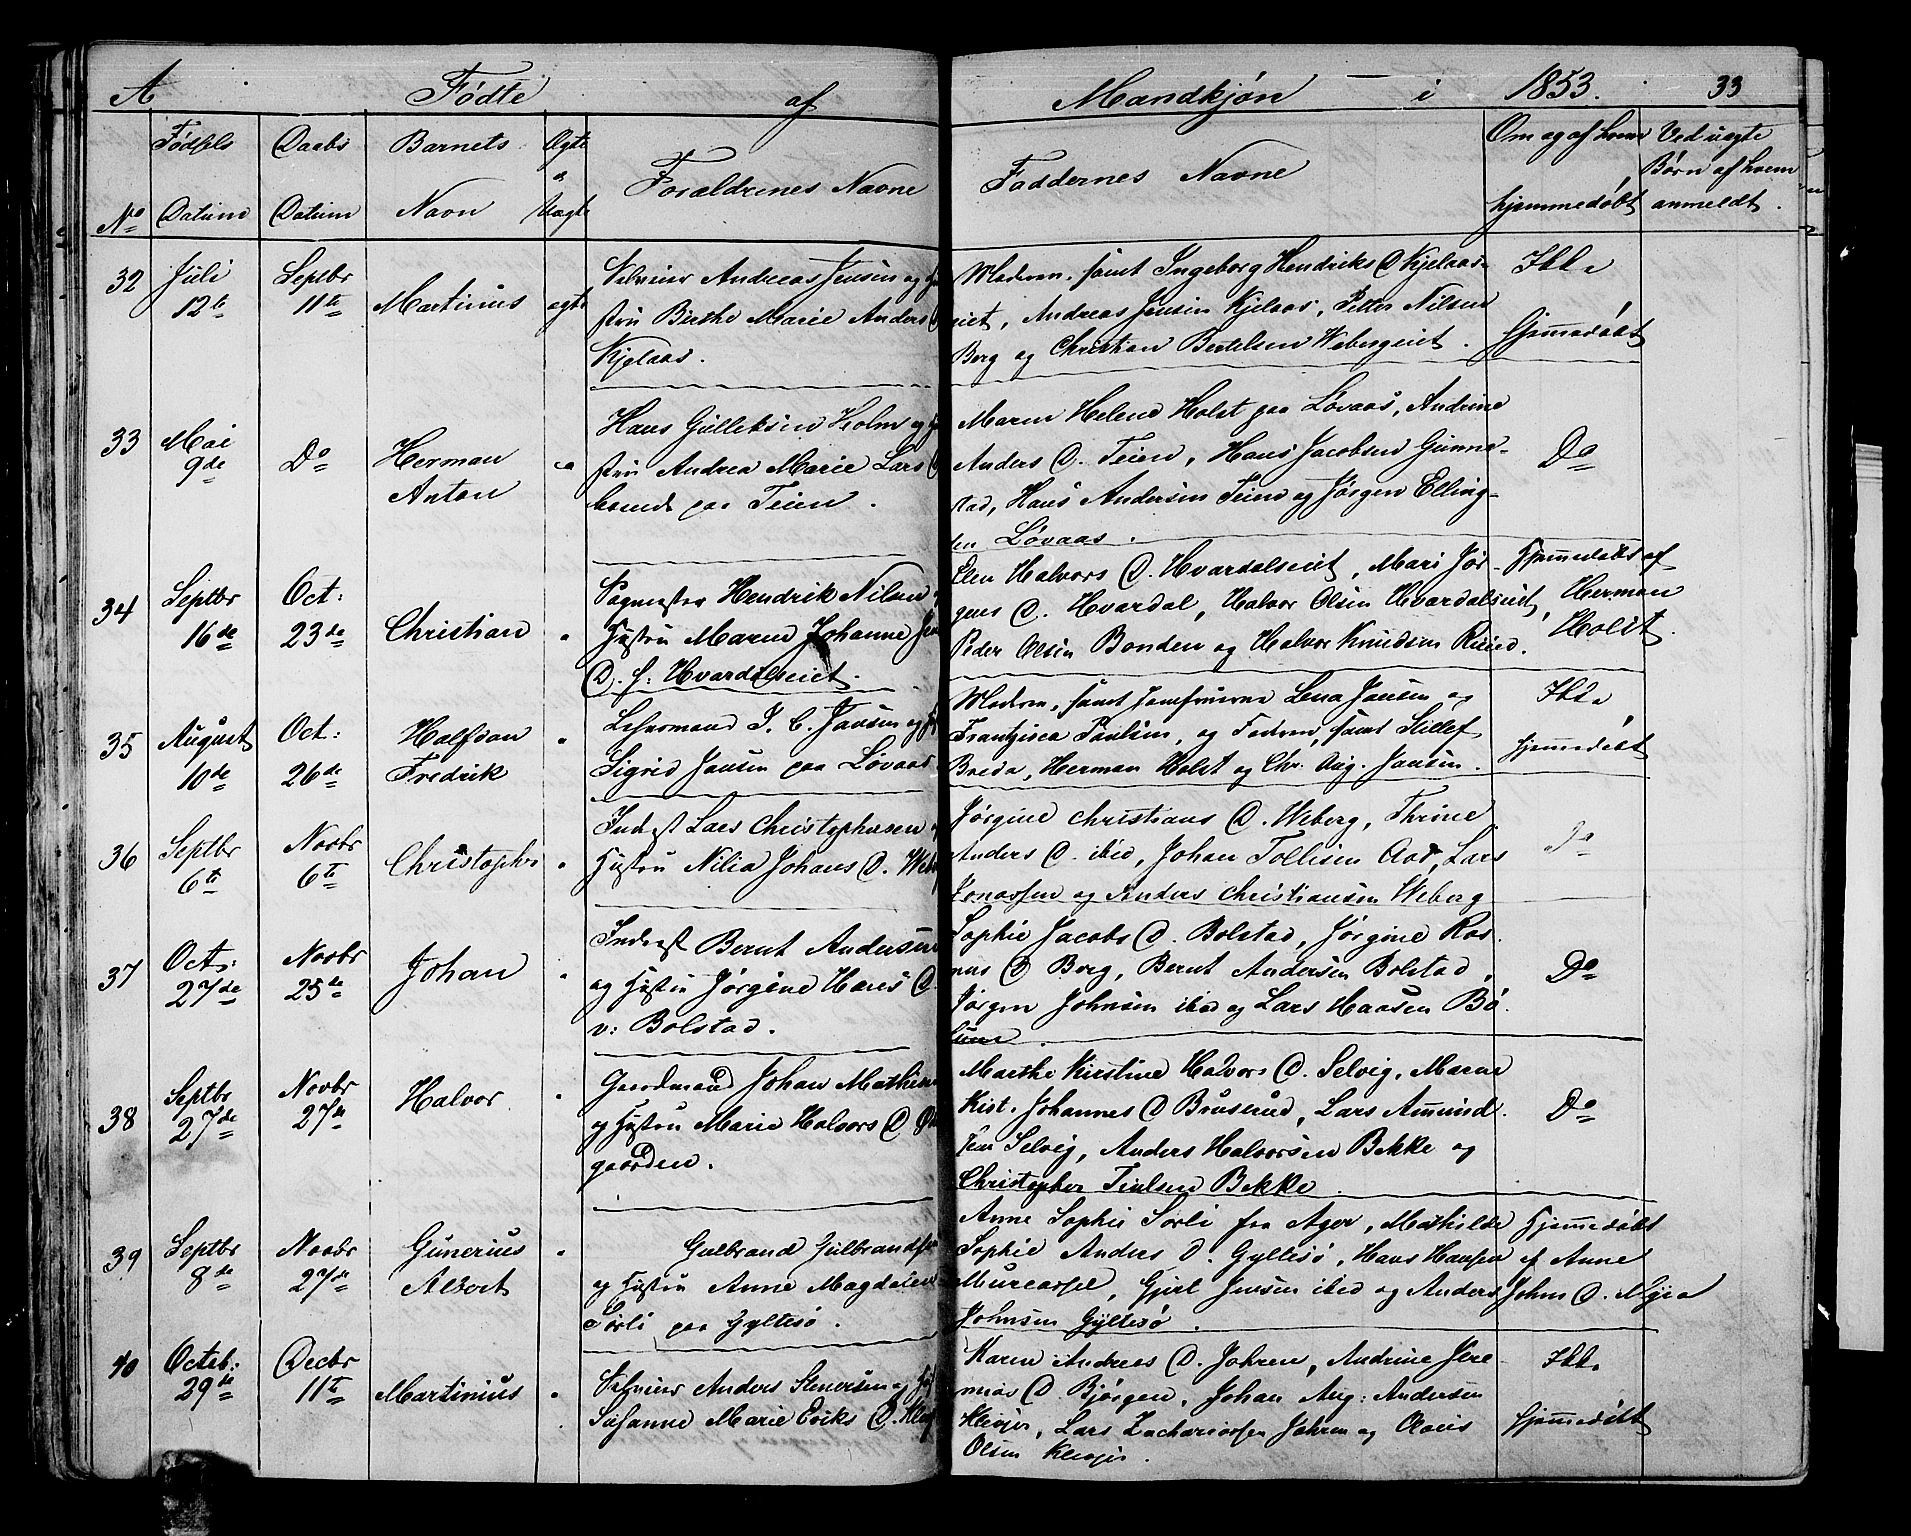 A Fødte af Mandkjøn i 1853. 33
No
Fødsels Datum
Daabs Datum
Barnets Navn
Ægte o Uægte
Forældrenes Navne
Faddernes Navne
Om og af hvem hjemmedøbt
Ved uægte Børn af hvem anmeldt.
32 Juli 12te Septbr 11te Martinius ægte
Selveier Andreas Jensen og
stru Birthe Marie Anders D
Kjelaas.
Modren, samt Ingeborg Hendriks D Kjelaas-
eiet, Andreas Jensen Kjelaas, Petter Nilsen
Berg og Christian Bertelsen Webergeiet.
Ikke
hjemmedøbt
33 Mai 9de Do Herman Anton
Hans Gulleksen Holm og
stru Andrea Marie Lars D
boende paa Teien.
Maren Helene Holst paa Løvaas, Andrine
Anders D. Teien, Hans Jacobsen Gunne-
stad, Hans Andersen Teien og Jørgen Elling-
sen Løvaas.
Do
34 Septbr 16de Oct: 23de Christian "
Sagmester Hendrik Nilsen
Hustru Maren Johanne
D. f: Hvardalseiet.
Elen Halvors D. Hvardalseiet, Mari Jør-
gens D. Hvardal, Halvor Olsen Hvardalseiet,
Peder Olsen Bonden og Halvor Knudsen Ruud.
Hjemmedøbt af
Herman
Holst.
35 August 10de Oct: 26de Halfdan Fredrik "
Lensmand I. C. Jansen og
Sigrid Jansen paa Løvaas
Modren, samt Jomfruerne Lena Jansen og
Frantzisca Paulsen, og Fadren, samt Skillef
Breda, Herman Holst og Chr. Aug. Jansen.
Ikke
hjemmedøbt
36 Septbr 6te Novbr 6te Christopher "
Inderst Lars Christophersen
Hustru Nilia Johans D.
Jørgine Christians D. Weberg, Thrine
Anders D. ibid, Johan Tollisen Aas, Lars
Jonassen og Anders Christiansen Weberg
Do
37 Oct: 27de Novbr 25de Johan "
Inderst Bernt Andersen
og Hustru Jørgine Hans D.
v: Bolstad.
Sophie Jacobs D. Bolstad, Jørgine Ras-
mus D Borg, Bernt Andersen Bolstad,
Jørgen Johnsen ibid og Lars Haasen Bø-
Do
38 Septbr 27de Novbr 27de Halvor "
Gaardmand Johan Mathisen
og Hustru Marie Halvors D
gaarden.
Marthe Kirstine Halvors D. Selvig, Maren
Kist. Johannes D Bruserud, Lars Amund-
sen Selvig, Anders Halvorsen Bekke og
Christopher Bekke.
Do
39 Septbr 8de Novbr 27de Gunerius Albert "
Gulbrand Gulbrandsen
og Hustru Anne Magdalene
Sørli paa Gyltesø.
Anne Sophie Sørli fra Ager, Mathilde
Sophie Anders D. Gyltesø, Hans Hansen
Murcassel, Gjert Jensen ibid og Anders
Johnsen Gyltesø.
Hjemmedøbt
af Anne
Johns D. Myra
40 Octob: 29de Decbr 11te Martinius "
Selveier Anders Stenersen og
Susanne Marie Eriks D.
Karen Andreas D. Johren, Andrine Jere-
mias D Bjørgen, Johan Aug: Andersen
Klevjer, Lars Zachariassen Johren og Claus
Olsen Klevjer.
Ikke
hjemmedøbt